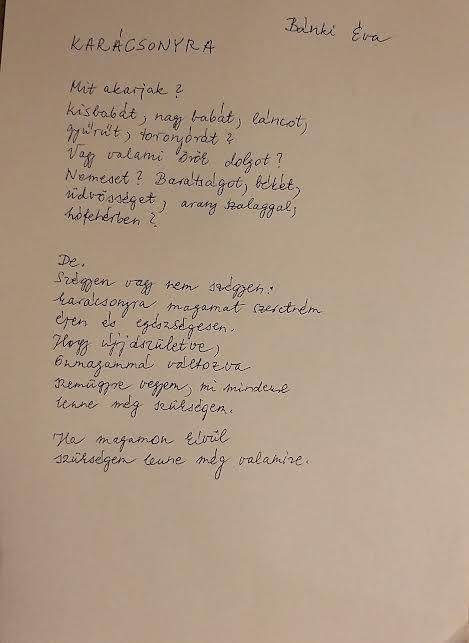 Bánki Éva
KARÁCSONYRA
Mit akarjak?
Kisbabát, nagy babát, láncot,
gyűrűt, toronyórát?
Vagy valami örök dolgot?
Nemeset? Barátságot, békét,
üdvösséget, arany szalaggal,
hófehérben?
De.
Szégyen vagy nem szégyen:
karácsonyra magamat szeretném
épen és egészségesen.
Hogy újjászületve,
önmagammá változva
szemügyre vegyem, mi mindenre
lenne még szükségem.
Ha magamon kívül
szükségem lenne még valamire.